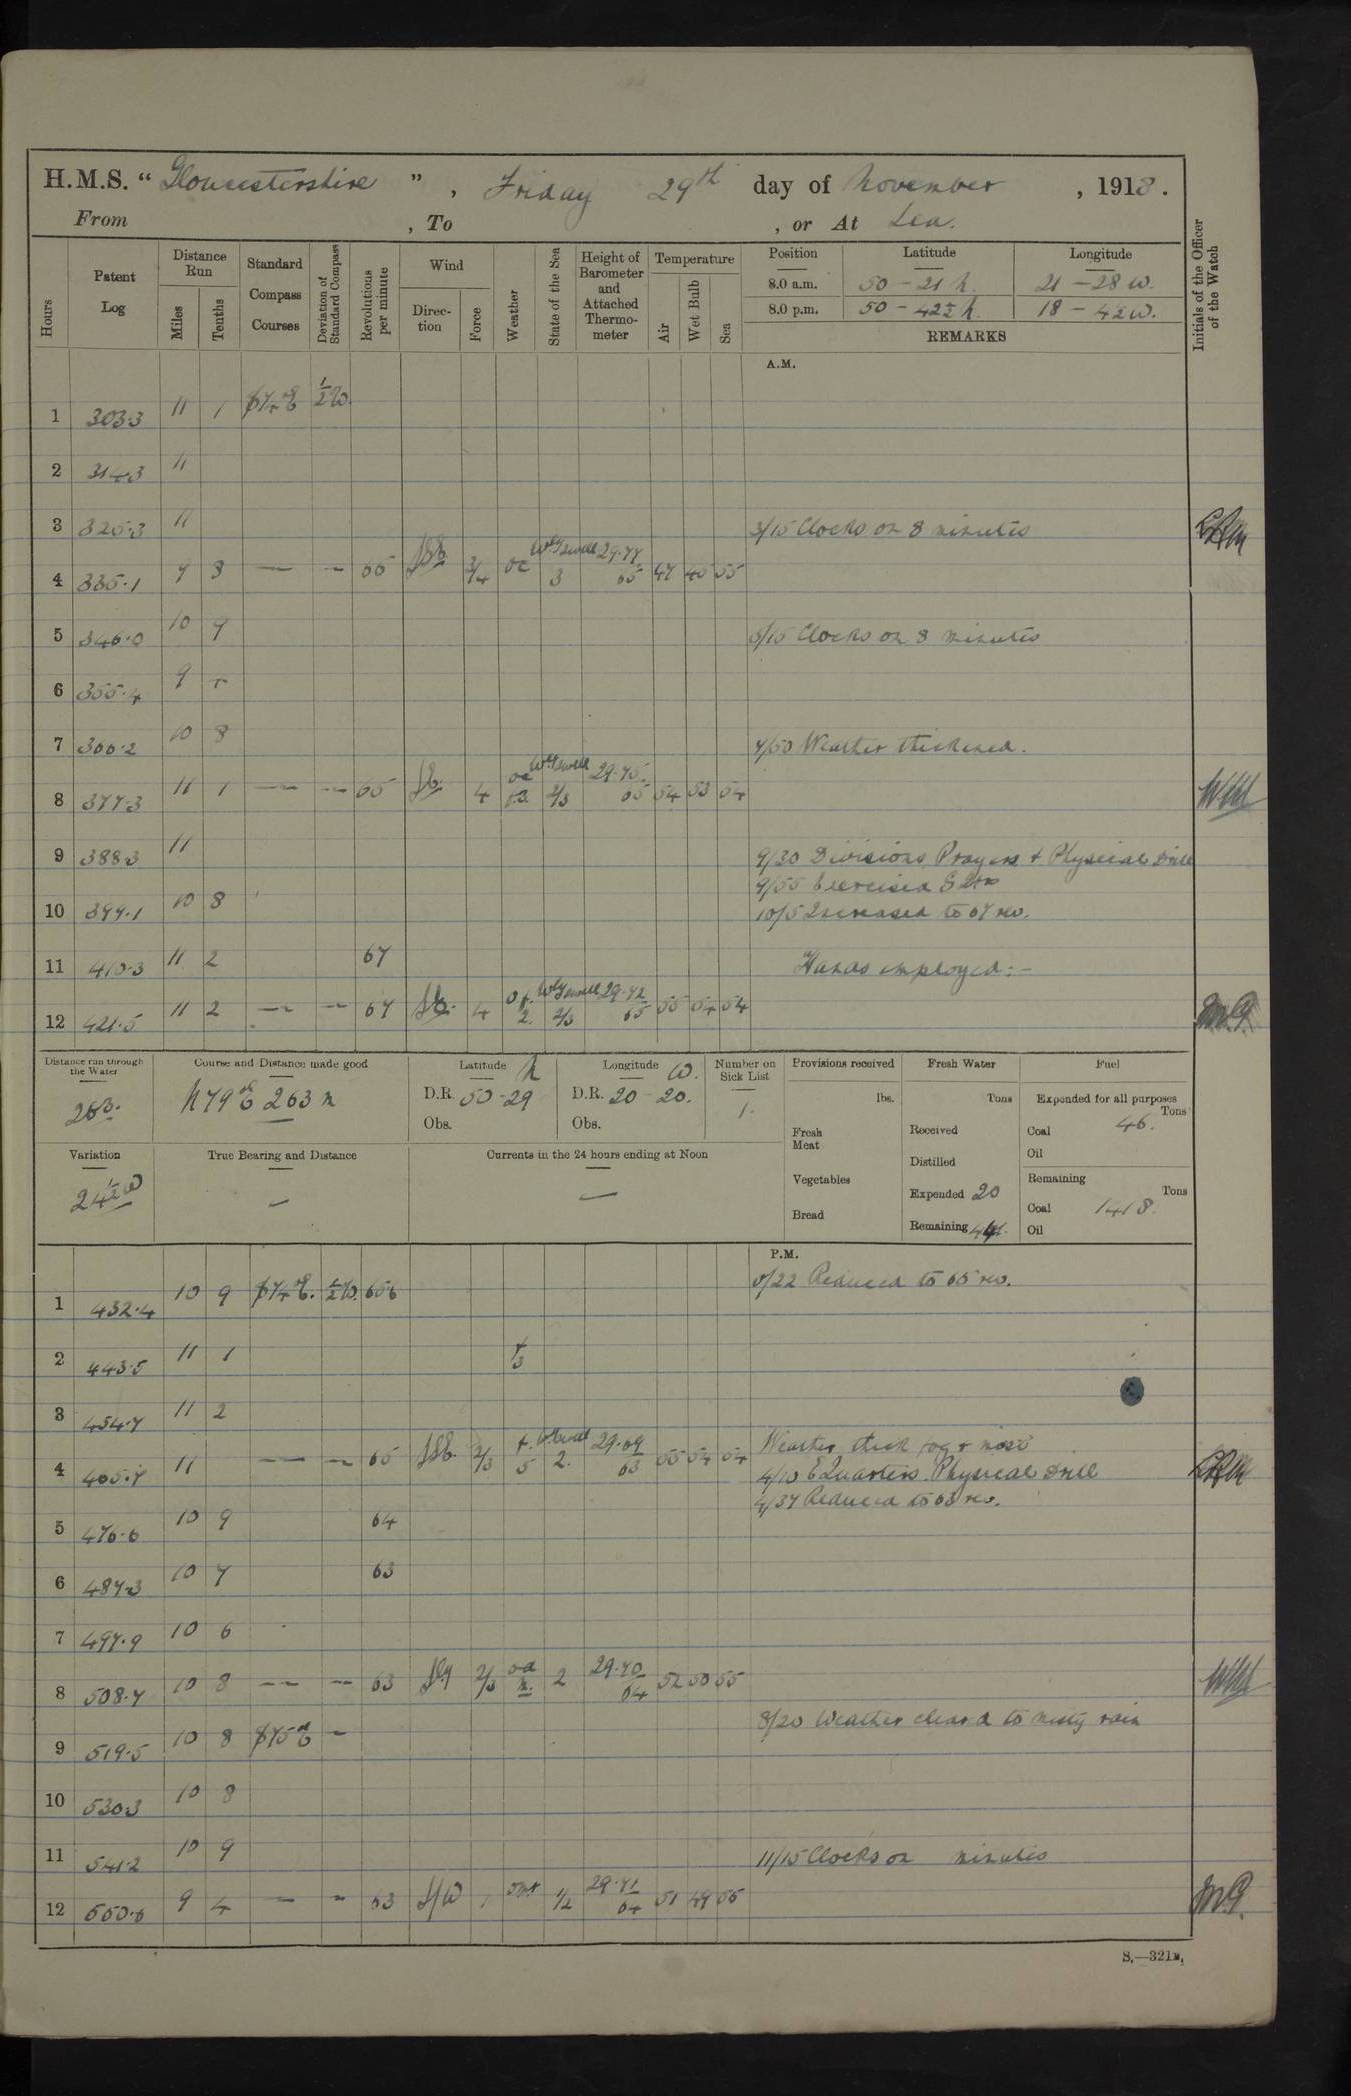 H.M.S. "Gloucestershire", Friday 29th day of November, 1918.
From , To , or At Sea.
Hours
Patent Log
Distance Run
Miles
Tenths
Standard Compass Courses
Deviation of Standard Compass
Revolutions per minute
Wind
Direction
Force
Weather
State of the Sea
Height of Barometer and Attached Thermometer
Temperature
Air
Wet Bulb
Sea
Position Latitude Longitude
8.0 a.m. 50-21 N. 21-28 W.
8.0 p.m. 50-42½ N. 18-42 W.
REMARKS
Initials of the Officer of the Watch
A.M.
1 303.3 11 1 ½W.
2 314.3 11
3 325.3 11 3/15 Clocks on 8 minutes
4 335.1 9 8 — — 65 3/4 oc WlySwell 3 29.77 65 47 45 55
5 346.0 10 9 5/15 Clocks on 8 minutes
6 355.4 9 4
7 366.2 10 8 7/50 Weather thickened.
8 377.3 11 1 — — 65 4 oc WlySwell 2/3 29.75 65 54 53 54
9 388.3 11 9/30 Divisions, Prayers & Physical Drill
9/55 Exercised G Qtrs
10 399.1 10 8 10/5 Increased to 67 rev.
11 410.3 11 2 67 Hands employed:-
12 421.5 11 2 — — 67 4 WlySwell 2/3 29.72 65 55 54 54
Distance run through the Water
263.
Course and Distance made good
N 79° E 263 m
Latitude N
D.R. 50-29
Obs.
Longitude W.
D.R. 20-20.
Obs.
Number on Sick List
1.
Provisions received
lbs.
Fresh Meat
Vegetables
Bread
Fresh Water
Tons
Received
Distilled
Expended 20
Remaining
Fuel
Expended for all purposes
Tons
Coal 46.
Oil
Remaining
Tons
Coal 1418.
Oil
Variation
24½W
True Bearing and Distance
—
Currents in the 24 hours ending at Noon
—
P.M.
0/22 Reduced to 65 rev.
1 432.4 10 9 ½W. 65.6
2 443.5 11 1
3 454.7 11 2
Weather thick fog & mist
4 465.7 11 — — 65 2/3 2. 29.69 63 55 54 54 4/10 E Quarters. Physical Drill
4/37 Reduced to 63 rev.
5 476.6 10 9 64
6 487.3 10 7 63
7 497.9 10 6
8 508.7 10 8 — — 63 2/3 2 29.70 64 52 50 55
8/20 Weather clear'd to misty rain
9 519.5 10 8 S75°E —
10 530.3 10 8
11 541.2 10 9 11/15 Clocks on minutes
12 550.6 9 4 — — 63 1 1/2 29.71 64 51 49 55
S.—321